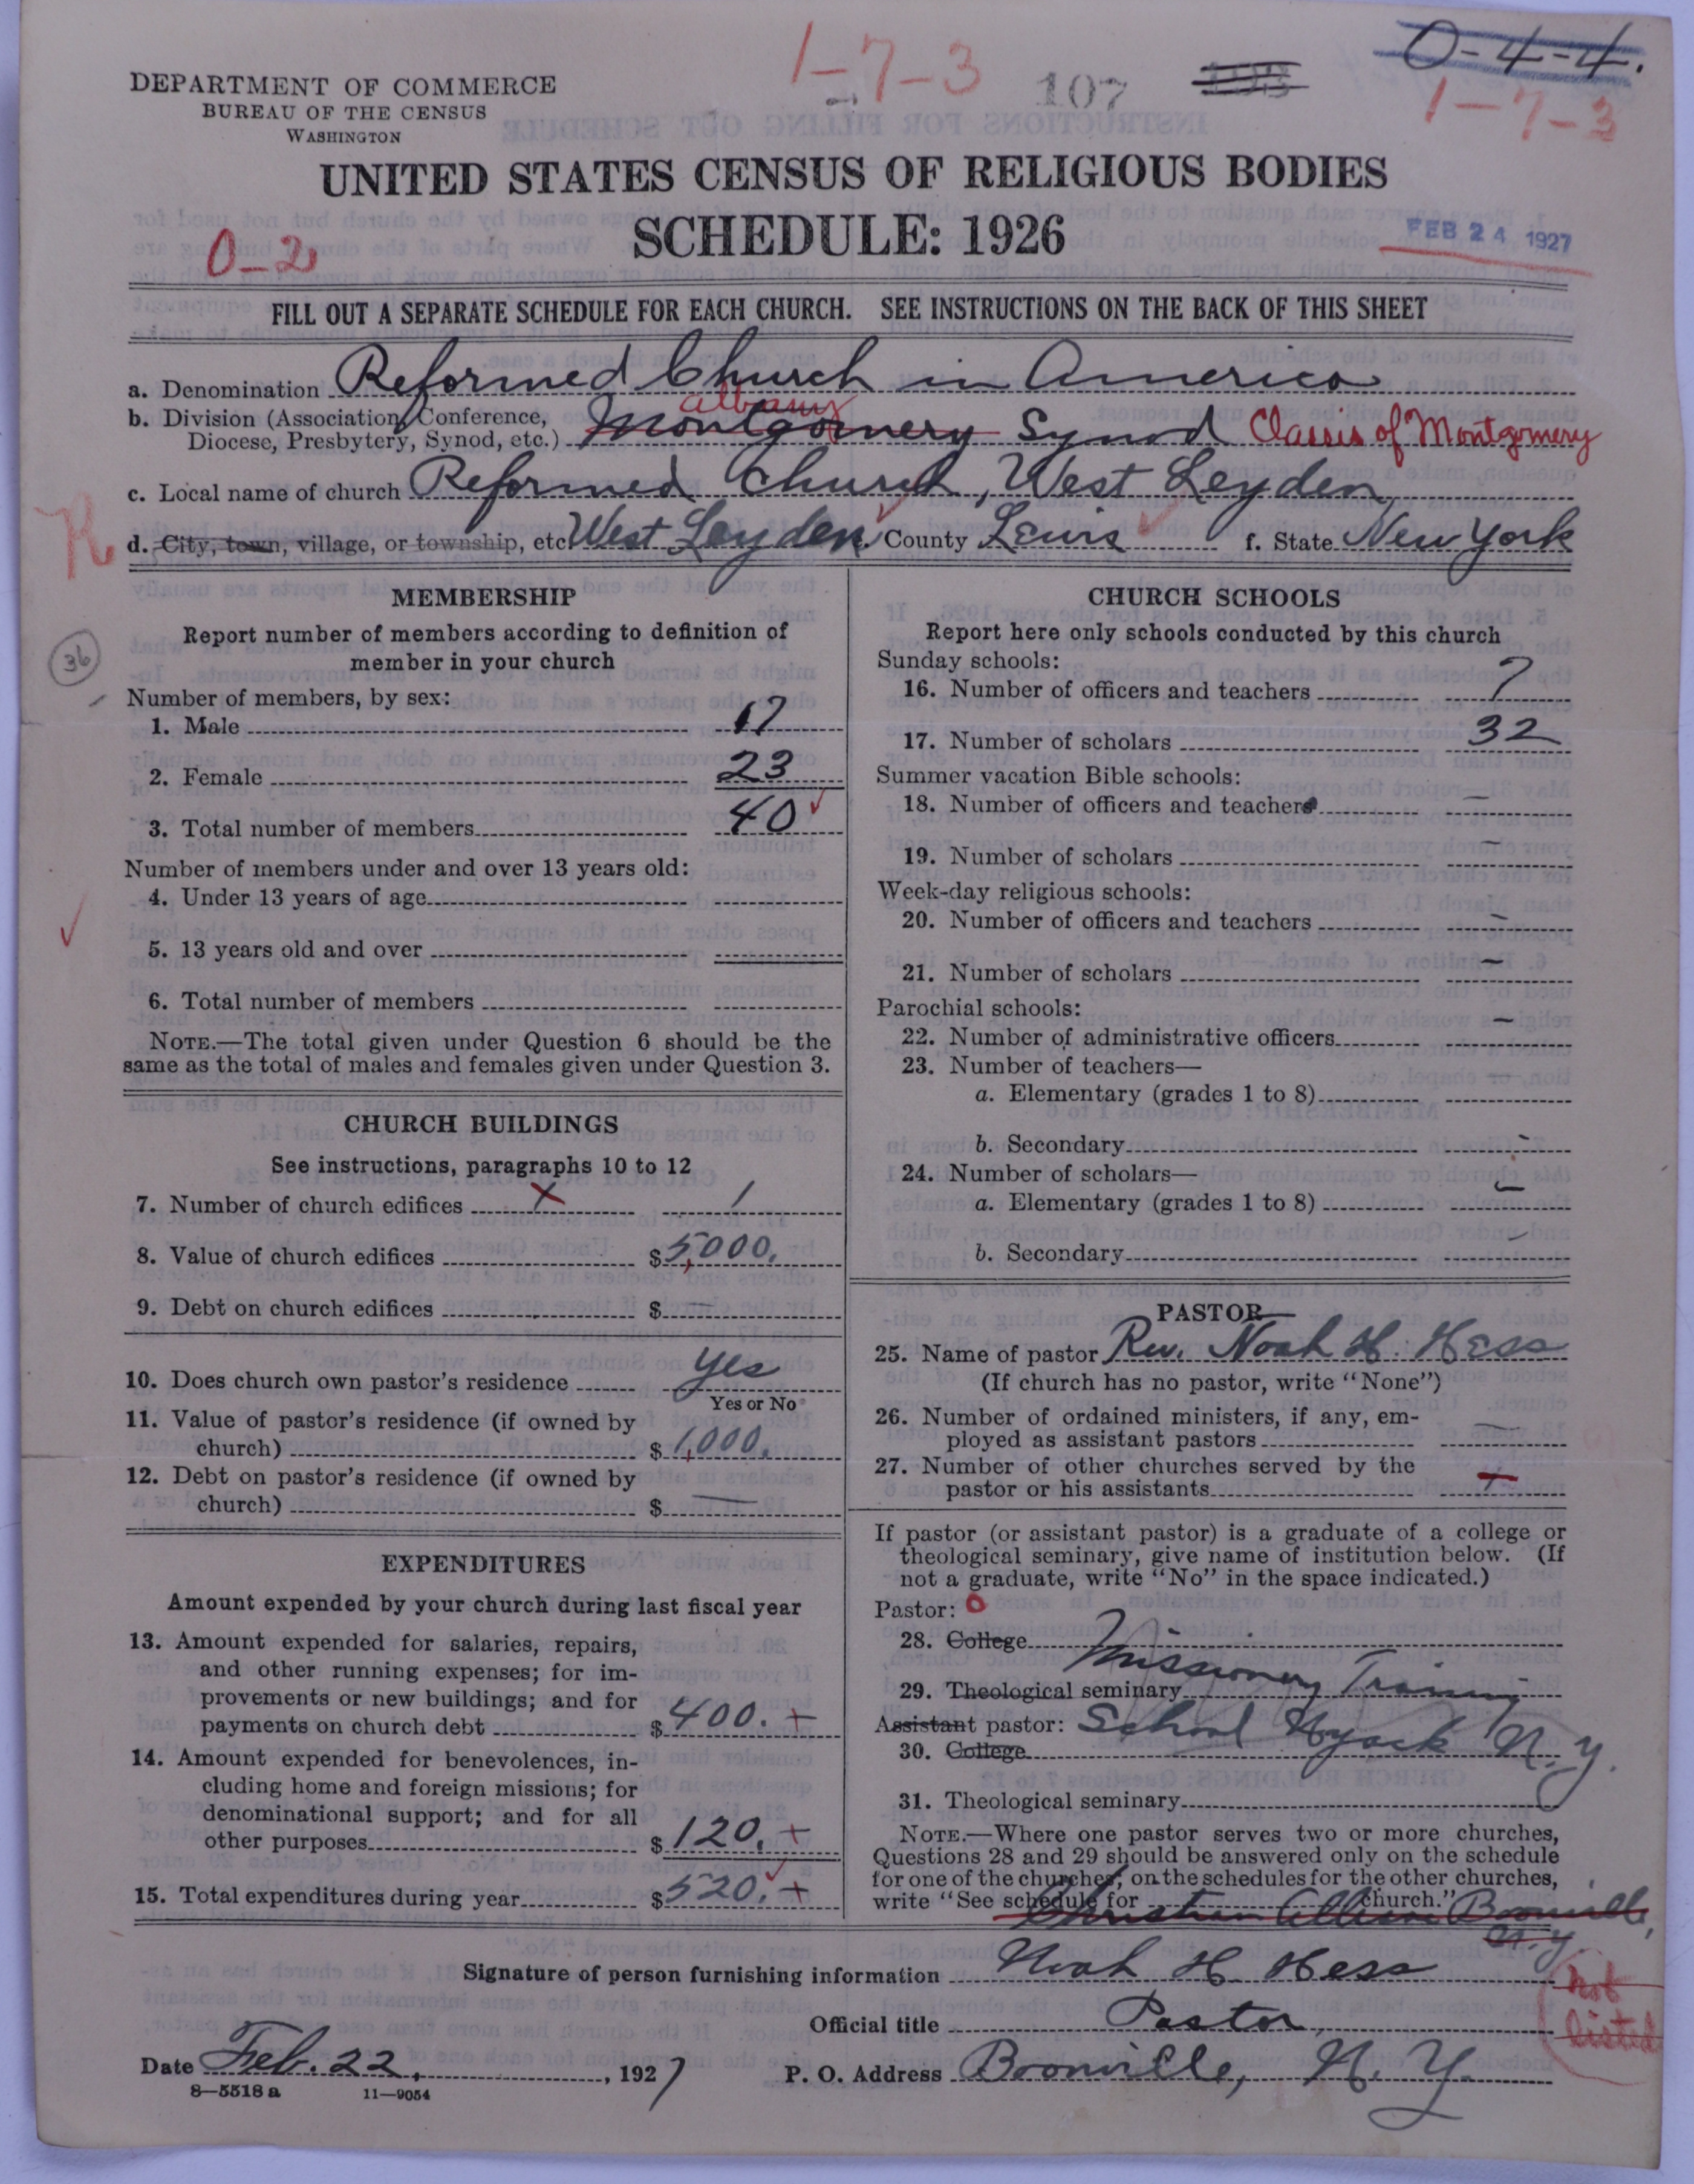 1-7-3
107
193
0-4-4.
1-7-3
DEPARTMENT OF COMMERCE
BUREAU OF THE CENSUS
WASHINGTON
UNITED STATES CENSUS OF RELIGIOUS BODIES
SCHEDULE: 1926
0-2
FEB 24 1927
FILL OUT A SEPARATE SCHEDULE FOR EACH CHURCH. SEE INSTRUCTIONS ON THE BACK OF THIS SHEET
a. Denomination Reformed Church in America
b. Division (Association, Conference,
Diocese, Presbytery, Synod, etc.) Montgomery albany Synod Classis of Montgomery
c. Local name of church Reformed Church, West Leyden,
K
d. City, town, village, or township, etc. West Leyden. County Lewis f. State New York
MEMBERSHIP
Report number of members according to definition of
member in your church
36
Number of members, by sex:
1. Male 17
2. Female 23
3. Total number of members 40
Number of members under and over 13 years old:
4. Under 13 years of age
5. 13 years old and over
6. Total number of members
NOTE.—The total given under Question 6 should be the
same as the total of males and females given under Question 3.
CHURCH BUILDINGS
See instructions, paragraphs 10 to 12
7. Number of church edifices x 1
8. Value of church edifices $5,000.
9. Debt on church edifices $ —
10. Does church own pastor's residence yes
Yes or No
11. Value of pastor's residence (if owned by
church) $1,000.
12. Debt on pastor's residence (if owned by
church) $ —
EXPENDITURES
Amount expended by your church during last fiscal year
13. Amount expended for salaries, repairs,
and other running expenses; for im-
provements or new buildings; and for
payments on church debt $400. +
14. Amount expended for benevolences, in-
cluding home and foreign missions; for
denominational support; and for all
other purposes $120. +
15. Total expenditures during year $520. +
CHURCH SCHOOLS
Report here only schools conducted by this church
Sunday schools:
16. Number of officers and teachers 7
17. Number of scholars 32
Summer vacation Bible schools:
18. Number of officers and teachers —
19. Number of scholars —
Week-day religious schools:
20. Number of officers and teachers —
21. Number of scholars —
Parochial schools:
22. Number of administrative officers —
23. Number of teachers—
a. Elementary (grades 1 to 8)
b. Secondary —
24. Number of scholars—
a. Elementary (grades 1 to 8) —
b. Secondary —
PASTOR
25. Name of pastor Rev. Noah H. Hess
(If church has no pastor, write "None")
26. Number of ordained ministers, if any, em-
ployed as assistant pastors —
27. Number of other churches served by the
pastor or his assistants
If pastor (or assistant pastor) is a graduate of a college or
theological seminary, give name of institution below. (If
not a graduate, write "No" in the space indicated.)
Pastor: 0
28. College
29. Theological seminary Missionary Training
Assistant pastor: School Nyack N.Y.
30. College
31. Theological seminary
NOTE.—Where one pastor serves two or more churches,
Questions 28 and 29 should be answered only on the schedule
for one of the churches; on the schedules for the other churches,
write "See schedule for Church."
Christian Alliance Boonville,
N.Y
Signature of person furnishing information Noah H. Hess
not
listed
Official title Pastor
Date Feb. 22, 1927
P. O. Address Boonville, N. Y.
8—5518 a 11—9054